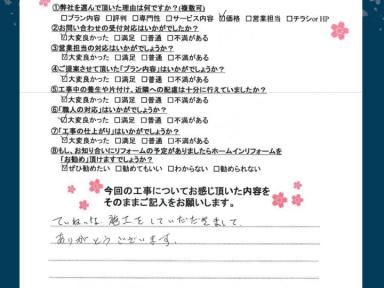 ①弊社を選んで頂いた理由は何ですか？(複数可)
□プラン内容 □評判 □専門性 □サービス内容 ☑価格 □営業担当 □チラシor HP
②お問い合わせの受付対応はいかがでしたか？
☑大変良かった □満足 □普通 □不満がある
③営業担当の対応はいかがでしょうか？
☑大変良かった □満足 □普通 □不満がある
④ご提案させて頂いた「プラン内容」はいかがでしょうか？
☑大変良かった □満足 □普通 □不満がある
⑤工事中の養生や片付け、近隣への配慮は十分に行えていましたか？
☑大変良かった □満足 □普通 □不満がある
⑥「職人の対応」はいかがでしょうか？
☑大変良かった □満足 □普通 □不満がある
⑦「工事の仕上がり」はいかがでしょうか？
☑大変良かった □満足 □普通 □不満がある
⑧もし、お知り合いにリフォームの予定がありましたらホームインリフォームを
「お勧め」頂けますでしょうか？
☑ぜひ勧めたい □勧めてもいい □わからない □勧められない
今回の工事についてお感じ頂いた内容を
そのままご記入をお願いします。
ていねいな施工をしていただきまして
ありがとうございます。